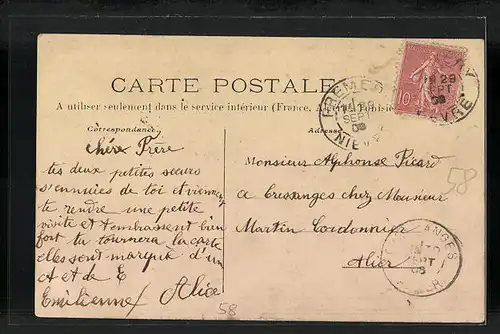 CARTE POSTALE
A utiliser seulement dans le service intérieur (France, Algérie, Tunisie
Correspondance
Adresse
chère Frère
tes deux petites sœurs
s'ennuies de toi et viennent
te rendre une petite
visite et t'embrassent bien
fort tu tournera la carte
elles sont marqué d'un
A et de E
Emilienne / Alice
Monsieur Alphonse Picard
a Cressanges chez Monsieur
Martin Cordonnier
Alier
58
58
PREMERY
29
SEPT
08
NIEVRE
10
29
SEPT
08
NIEVRE
ANGES
SEPT
08